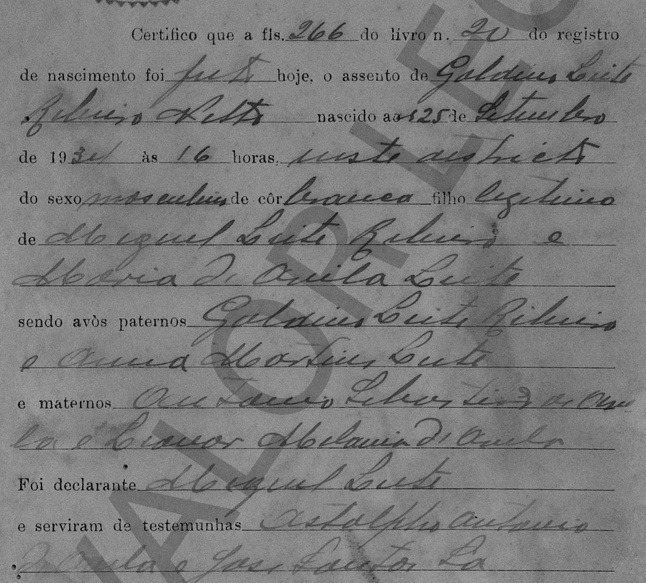 Certifico que a fls. 266 do livro n. 20 do registro
de nascimento foi feito hoje, o assento de Galdino Leite
Ribeiro Netto nascido aos 25 de Setembro
de 1934 às 16 horas, neste districto
do sexo masculino de côr branca filho legitimo
de Miguel Leite Ribeiro e
Maria de Avila Leite
sendo avòs paternos Galdino Leite Ribeiro
e Anna Martins Leite
e maternos Antonio Sebastião de Avi
la e Leonor de Avila
Foi declarante Miguel Leite
e serviram de testemunhas Astolpho Antonio
de Avila e José Santos
VALOR LEG